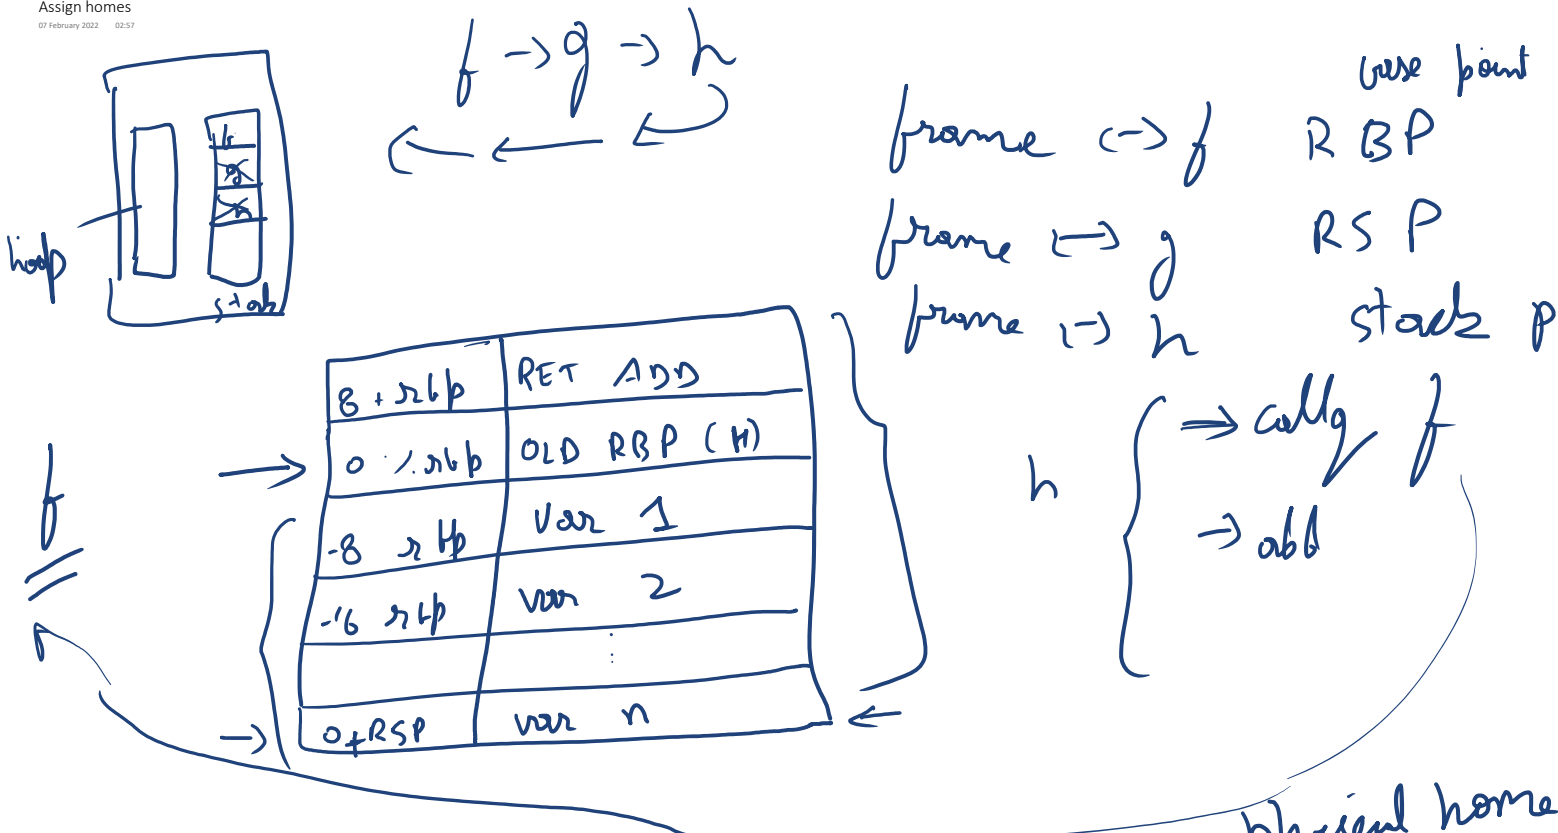 Assign homes
07 February 2022 02:57
f → g → h
base point
frame ↔ f
R B P
frame ↔ g
R S P
frame ↔ h
stack p
heap
h
g
stack
8 + rbp RET ADD
0 %rbp OLD RBP (H)
-8 rbp var 1
-16 rbp var 2
⋮
0+RSP var n
f
h
⇒ callq f
→ add
physical home